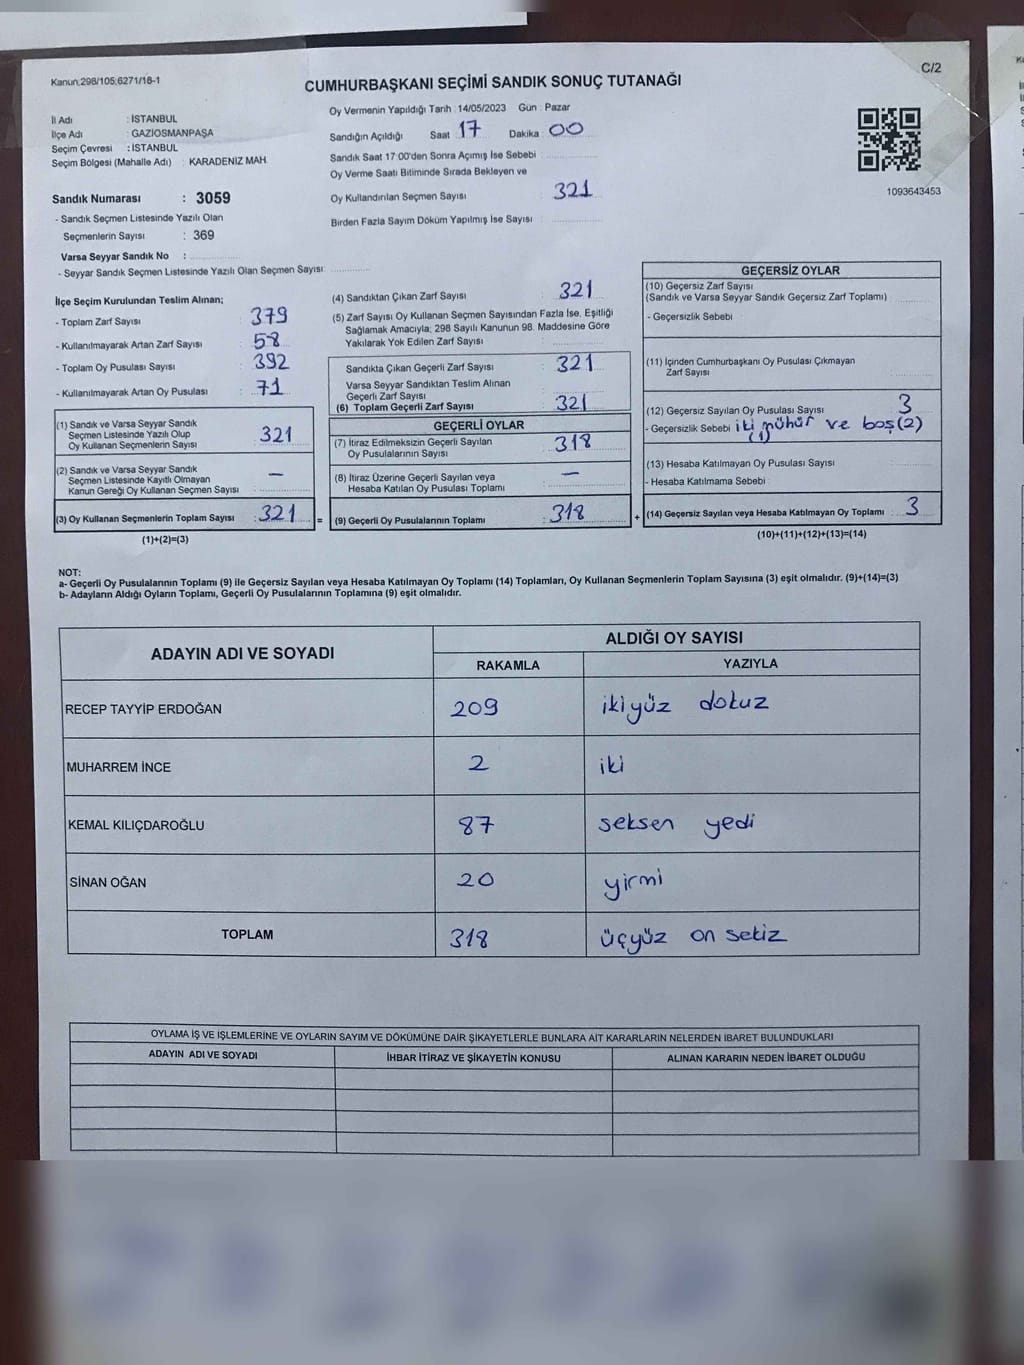 Kanun:298/105;6271/18-1
C/2
CUMHURBAŞKANI SEÇİMİ SANDIK SONUÇ TUTANAĞI
İl Adı : İSTANBUL
İlçe Adı : GAZİOSMANPAŞA
Seçim Çevresi : İSTANBUL
Seçim Bölgesi (Mahalle Adı) : KARADENİZ MAH.
Sandık Numarası : 3059
- Sandık Seçmen Listesinde Yazılı Olan
Seçmenlerin Sayısı : 369
Varsa Seyyar Sandık No :
- Seyyar Sandık Seçmen Listesinde Yazılı Olan Seçmen Sayısı:
Oy Vermenin Yapıldığı Tarih : 14/05/2023 Gün : Pazar
Sandığın Açıldığı Saat 17 Dakika : 00
Sandık Saat 17:00'den Sonra Açımış İse Sebebi :
Oy Verme Saati Bitiminde Sırada Bekleyen ve
Oy Kullandırılan Seçmen Sayısı : 321
Birden Fazla Sayım Döküm Yapılmış İse Sayısı :
1093643453
İlçe Seçim Kurulundan Teslim Alınan;
- Toplam Zarf Sayısı : 379
- Kullanılmayarak Artan Zarf Sayısı : 58
- Toplam Oy Pusulası Sayısı : 392
- Kullanılmayarak Artan Oy Pusulası : 71
(1) Sandık ve Varsa Seyyar Sandık
Seçmen Listesinde Yazılı Olup
Oy Kullanan Seçmenlerin Sayısı : 321
(2) Sandık ve Varsa Seyyar Sandık
Seçmen Listesinde Kayıtlı Olmayan
Kanun Gereği Oy Kullanan Seçmen Sayısı : —
(3) Oy Kullanan Seçmenlerin Toplam Sayısı : 321 =
(1)+(2)=(3)
(4) Sandıktan Çıkan Zarf Sayısı : 321
(5) Zarf Sayısı Oy Kullanan Seçmen Sayısından Fazla İse, Eşitliği
Sağlamak Amacıyla; 298 Sayılı Kanunun 98. Maddesine Göre
Yakılarak Yok Edilen Zarf Sayısı :
Sandıkta Çıkan Geçerli Zarf Sayısı : 321
Varsa Seyyar Sandıktan Teslim Alınan
Geçerli Zarf Sayısı :
(6) Toplam Geçerli Zarf Sayısı : 321
GEÇERLİ OYLAR
(7) İtiraz Edilmeksizin Geçerli Sayılan
Oy Pusulalarının Sayısı : 318
(8) İtiraz Üzerine Geçerli Sayılan veya
Hesaba Katılan Oy Pusulası Toplamı : —
(9) Geçerli Oy Pusulalarının Toplamı : 318 +
GEÇERSİZ OYLAR
(10) Geçersiz Zarf Sayısı
(Sandık ve Varsa Seyyar Sandık Geçersiz Zarf Toplamı) :
- Geçersizlik Sebebi :
(11) İçinden Cumhurbaşkanı Oy Pusulası Çıkmayan
Zarf Sayısı :
(12) Geçersiz Sayılan Oy Pusulası Sayısı : 3
- Geçersizlik Sebebi iki mühür ve boş(2)
(1)
(13) Hesaba Katılmayan Oy Pusulası Sayısı :
- Hesaba Katılmama Sebebi
(14) Geçersiz Sayılan veya Hesaba Katılmayan Oy Toplamı : 3
(10)+(11)+(12)+(13)=(14)
NOT:
a- Geçerli Oy Pusulalarının Toplamı (9) ile Geçersiz Sayılan veya Hesaba Katılmayan Oy Toplamı (14) Toplamları, Oy Kullanan Seçmenlerin Toplam Sayısına (3) eşit olmalıdır. (9)+(14)=(3)
b- Adayların Aldığı Oyların Toplamı, Geçerli Oy Pusulalarının Toplamına (9) eşit olmalıdır.
ADAYIN ADI VE SOYADI
ALDIĞI OY SAYISI
RAKAMLA YAZIYLA
RECEP TAYYİP ERDOĞAN 209 ikiyüz dokuz
MUHARREM İNCE 2 iki
KEMAL KILIÇDAROĞLU 87 seksen yedi
SİNAN OĞAN 20 yirmi
TOPLAM 318 üçyüz on sekiz
OYLAMA İŞ VE İŞLEMLERİNE VE OYLARIN SAYIM VE DÖKÜMÜNE DAİR ŞİKAYETLERLE BUNLARA AİT KARARLARIN NELERDEN İBARET BULUNDUKLARI
ADAYIN ADI VE SOYADI İHBAR İTİRAZ VE ŞİKAYETİN KONUSU ALINAN KARARIN NEDEN İBARET OLDUĞU